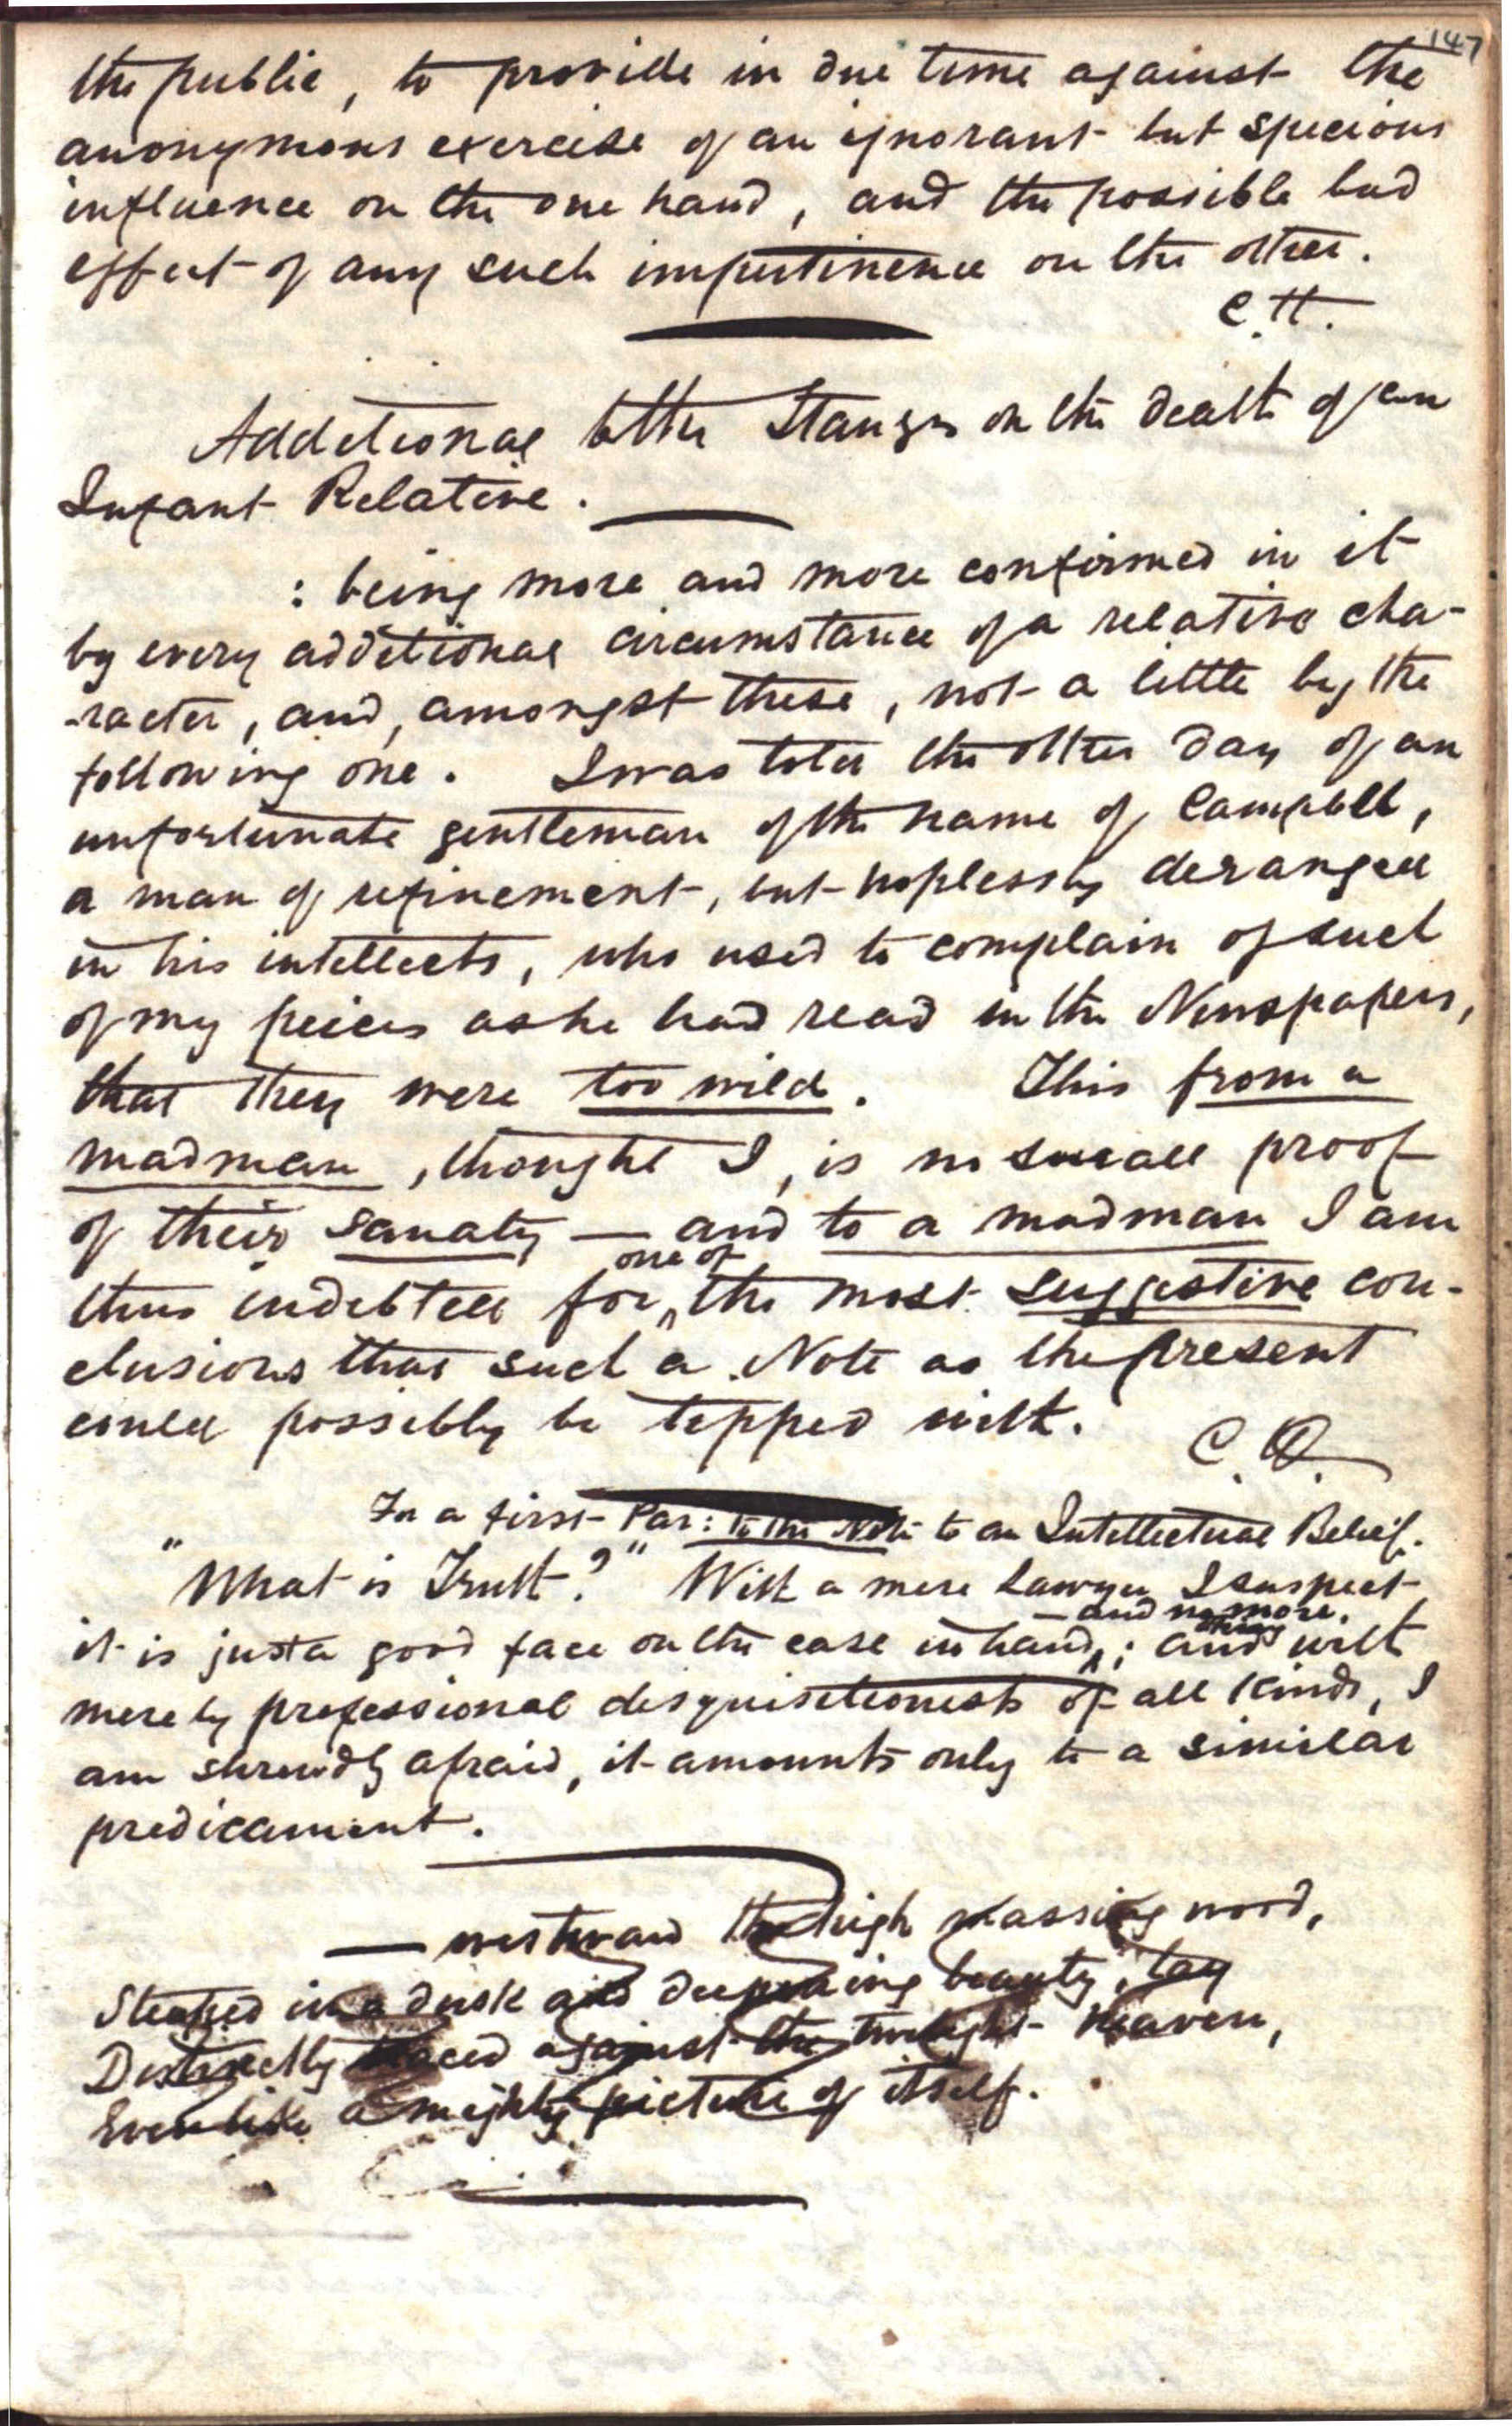 147
the public, to provide in due time against the
anonymous exercise of an ignorant but specious
influence on the one hand, and the possible bad
effect of any such impertinence on the other.
C.H.
Additional to the Stanzas on the death of an
Infant Relative.
: being more and more confirmed in it
by every additional circumstance of a relative cha-
-racter, and, amongst these, not a little by the
following one. I was told the other day of an
unfortunate gentleman of the name of Campbell,
a man of refinement, but hoplessly deranged
in his intellects, who used to complain of such
of my peices as he had read in the Newspapers,
that they were too wild. This from a
madman, thought I, is no small proof
of their sanaty — and to a madman I am
one of
thus indebted for the most suggestive con-
clusions that such a Note as the present
could possibly be topped with.
C.H.
In a first Par: to the Note to an Intellectual Belief.
"What is Truth?" With a mere Lawyer I suspect
— and no more.
it is just a good face on the case in hand; and with
merely professional disquisitionests of all kinds, I
am shrewdly afraid, it amounts only to a similar
predicament.
— westward the high massing wood,
Steeped in a dusk and deepening beauty, lay
Distinctly traced against the twilight heaven,
Even like a mighty picture of itself.